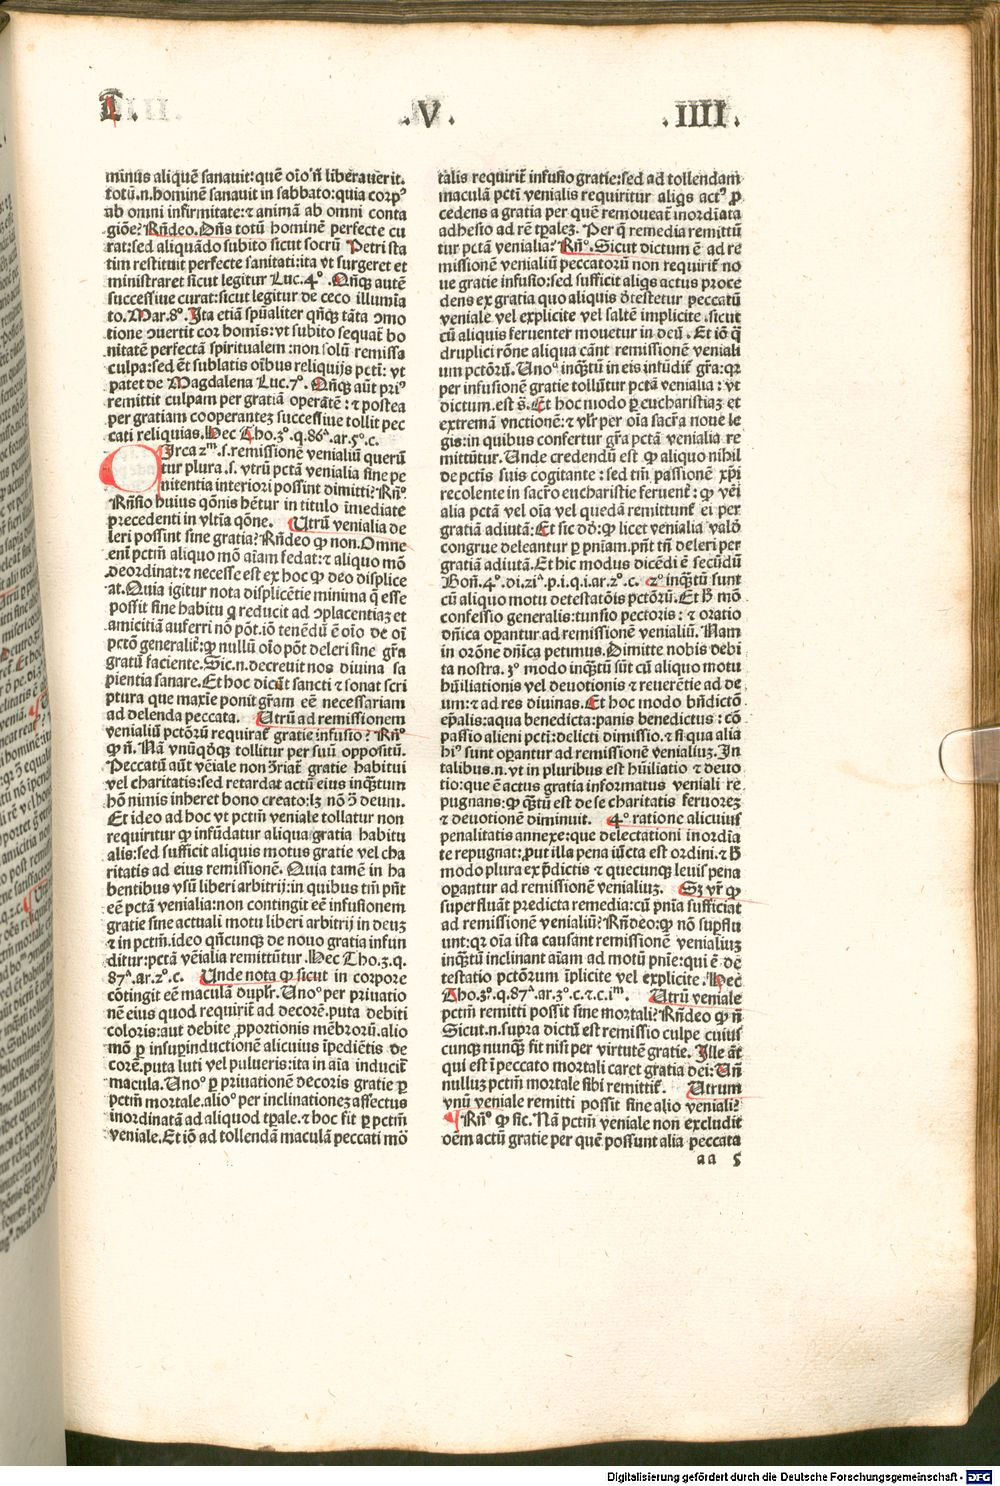 T. V. IIII.
minus aliquē sanauit: quē oīo ñ liberauerit.
totū.n.hominē sanauit in sabbato: quia corpꝰ
ab omni infirmitate: ⁊ animā ab omni conta
giōe? Rñdeo. Dñs totū hominē perfecte cu
rat: sed aliquādo subito sicut socrū Petri sta
tim restituit perfecte sanitati: ita vt surgeret et
ministraret sicut legitur Luc.4°. Qñqꝫ autē
successiue curat: sicut legitur de ceco illumīa
to. Mar.8°. Ita etiā spūaliter qñqꝫ tāta ɔmo
tione ɔuertit cor homīs: vt subito sequat̄ bo
nitatē perfectā spiritualem: non solū remissa
culpa: sed ēt sublatis oībus reliquijs pcti: vt
patet de Magdalena Luc.7°. Qñqꝫ aūt priꝰ
remittit culpam per gratiā operātē: ⁊ postea
per gratiam cooperantez successiue tollit pec
cati reliquias. Hec Tho.3°.q.86ᵃ.ar.5°.c.
Circa 2ᵐ.s.remissionē venialiū querū
tur plura.s. vtrū pctā venialia sine pe
nitentia interiori possint dimitti? Rñ°
Rñsio huius qōnis hētur in titulo īmediate
precedenti in vltīa qōne. Utrū venialia de
leri possint sine gratia? Rñdeo ꝙ non. Omne
enī pctm̄ aliquo mō aīam fedat: ⁊ aliquo mō
deordinat: ⁊ necesse est ex hoc ꝙ deo displice
at. Quia igitur nota displicētie minima q̄ esse
possit sine habitu q reducit ad ɔplacentiaz et
amicitiā auferri nō pōt. iō tenēdū ē oīo de oī
pctō generalit̄: ꝙ nullū oīo pōt deleri sine gr̄a
gratū faciente. Sic.n.decreuit nos diuina sa
pientia sanare. Et hoc dicūt sancti ⁊ sonat scri
ptura que maxīe ponit gr̄am eē necessariam
ad delenda peccata. Utrū ad remissionem
venialiū pctōrū requirat̄ gratie infusio? Rñ°
ꝙ ñ. Nā vnūqōqꝫ tollitur per suū oppositū.
Peccatū aūt vēiale non ɔ̄riat̄ gratie habitui
vel charitatis: sed retardat actū eius inqꝫtum
hō nimis inheret bono creato: lꝫ nō ɔ̄ deum.
Et ideo ad hoc vt pctm̄ veniale tollatur non
requiritur ꝙ infūdatur aliqua gratia habitu
alis: sed sufficit aliquis motus gratie vel cha
ritatis ad eius remissionē. Quia tamē in ha
bentibus vsū liberi arbitrij: in quibus tm̄ pn̄t
eē pctā venialia: non contingit eē infusionem
gratie sine actuali motu liberi arbitrij in deuz
⁊ in pctm̄. ideo qn̄cunqꝫ de nouo gratia infun
ditur: pctā vēialia remittūtur. Hec Tho.3.q.
87ᵃ.ar.2°.c. Unde nota ꝙ sicut in corpore
cōtingit eē maculā duplr̄. Uno° per priuatio
nē eius quod requirit̄ ad decorē. puta debiti
coloris: aut debite ꝓportionis mēbrorū. alio
mō ꝑ insuꝑinductionē alicuius īpediētis de
corē. puta luti vel pulueris: ita in aīa inducit̄
macula. Uno° ꝑ priuationē decoris gratie ꝑ
pctm̄ mortale. alio° per inclinationez affectus
inordinatā ad aliquod tꝑale. ⁊ hoc fit ꝑ pctm̄
veniale. Et iō ad tollendā maculā peccati mō
talis requirit̄ infusio gratie: sed ad tollendam
maculā pcti venialis requiritur aliqs actꝰ ꝓ
cedens a gratia per quē remoueat̄ inordīata
adhesio ad rē tꝑalez. Per q̄ remedia remittū
tur pctā venialia? Rñ°. Sicut dictum ē ad re
missionē venialiū peccatorū non requirit̄ no
ue gratie infusio: sed sufficit aliqs actus proce
dens ex gratia quo aliquis detestetur peccatū
veniale vel explicite vel saltē implicite. sicut
cū aliquis feruenter mouetur in deū. Et iō q̄
druplici rōne aliqua cānt remissionē veniali
um pctōrū. Uno° inqꝫtū in eis infūdit̄ gr̄a: qꝛ
per infusionē gratie tollūtur pctā venialia: vt
dictum.est s̄. Et hoc modo ꝑ eucharistiaz et
extremā vnctionē: ⁊ vlr̄ per oīa sacr̄a noue le
gis: in quibus confertur gr̄a pctā venialia re
mittūtur. Unde credendū est ꝙ aliquo nihil
de pctīs suis cogitante: sed tm̄ passionē xp̄i
recolente in sacr̄o eucharistie feruent̄: ꝙ vēi
alia pctā vel oīa vel quedā remittunt̄ ei per
gratiā adiutā: Et sic dō: ꝙ licet venialia valde
congrue deleantur ꝑ pnīam. pn̄t tn̄ deleri per
gratiā adiutā. Et hic modus dicēdi ē secūdū
Boñ.4°.di.21ᵃ.p.i.q.i.ar.2°.c. 2° inqꝫtū sunt
cū aliquo motu detestatōis pctōrū. Et hͦ mō
confessio generalis: tunsio pectoris: ⁊ oratio
dn̄ica oꝑantur ad remissionē venialiū. Nam
in orōne dn̄ica petimus. Dimitte nobis debi
ta nostra. 3° modo inqꝫtū sūt cū aliquo motu
hūiliationis vel deuotionis ⁊ reuerētie ad de
um: ⁊ ad res diuinas. Et hoc modo bn̄dictō
ep̄alis: aqua benedicta: panis benedictus: cō
passio alieni pcti: delicti dimissio. ⁊ si qua alia
hiꝰ sunt oꝑantur ad remissionē venialiuz. In
talibus.n.vt in pluribus est hūiliatio ⁊ deuo
tio: que ē actus gratia informatus veniali re
pugnans: ꝙ qꝫtū est de se charitatis feruorez
⁊ deuotionē diminuit. 4° ratione alicuius
penalitatis annexe: que delectationi inordīa
te repugnat: ꝓut illa pena iūcta est ordini. ⁊ hͦ
modo plura ex p̄dictis ⁊ quecunqꝫ leuis pena
oꝑantur ad remissionē venialiuz. Sꝫ vr̄ ꝙ
superfluāt predicta remedia: cū pnīa sufficiat
ad remissionē venialiū? Rñdeo: ꝙ nō supflu
unt: qꝛ oīa ista causant remissionē venialiuz
inqꝫtū inclinant aīam ad motū pnīe: qui ē de
testatio pctōrum īplicite vel explicite. Hec
Tho.3°.q.87ᵃ.ar.3°.c.⁊.c.iᵐ. Utrū veniale
pctm̄ remitti possit sine mortali? Rñdeo ꝙ ñ
Sicut.n.supra dictū est remissio culpe cuius
cunqꝫ nunqꝫ fit nisi per virtutē gratie. Ille āt
qui est ī peccato mortali caret gratia dei: Uñ
nulluz pctm̄ mortale sibi remittit̄. Utrum
vnū veniale remitti possit sine alio veniali?
¶ Rñ° ꝙ sic. Nā pctm̄ veniale non excludit
oēm actū gratie per quē possunt alia peccata
aa 5
Digitalisierung gefördert durch die Deutsche Forschungsgemeinschaft - DFG